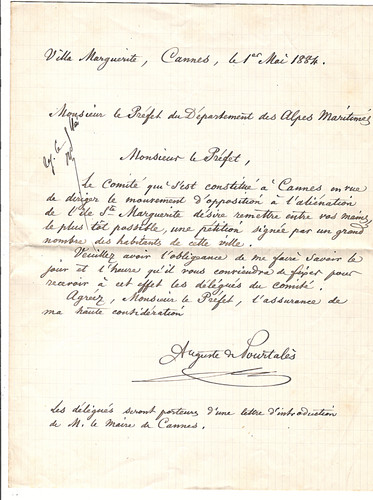 Villa Marguerite, Cannes, le 1er Mai 1884.
Monsieur le Préfet du Département des Alpes Maritimes
Monsieur le Préfet,
Le Comité qui s'est constitué à Cannes en vue
de diriger le mouvement d'opposition à l'aliénation
de l'île Ste Marguerite désire remettre entre vos mains,
le plus tôt possible, une pétition signée par un grand
nombre des habitants de cette ville.
Veuillez avoir l'obligeance de me faire savoir le
jour et l'heure qu'il vous conviendra de fixer pour
recevoir à cet effet les délégués du comité.
Agréez, Monsieur le Préfet, l'assurance de
ma haute considération
Auguste de Pourtalès
Les délégués seront porteurs d'une lettre d'introduction
de M. le Maire de Cannes.